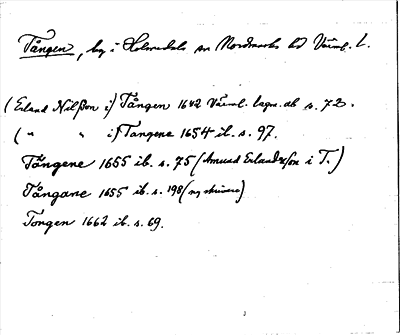 Tången, by i Holmedals sn Nordmarks hd Värml. l.
(Erland Nilsson i) Tången 1642 Värml. lagm. db s. 72.
( " " i) Tangene 1654 ib. s. 97.
Tångene 1655 ib. s. 75 (Amund Erlandsson i T.)
Tångane 1655 ib. s. 198 (ny skrivare)
Tongen 1662 ib. s. 69.